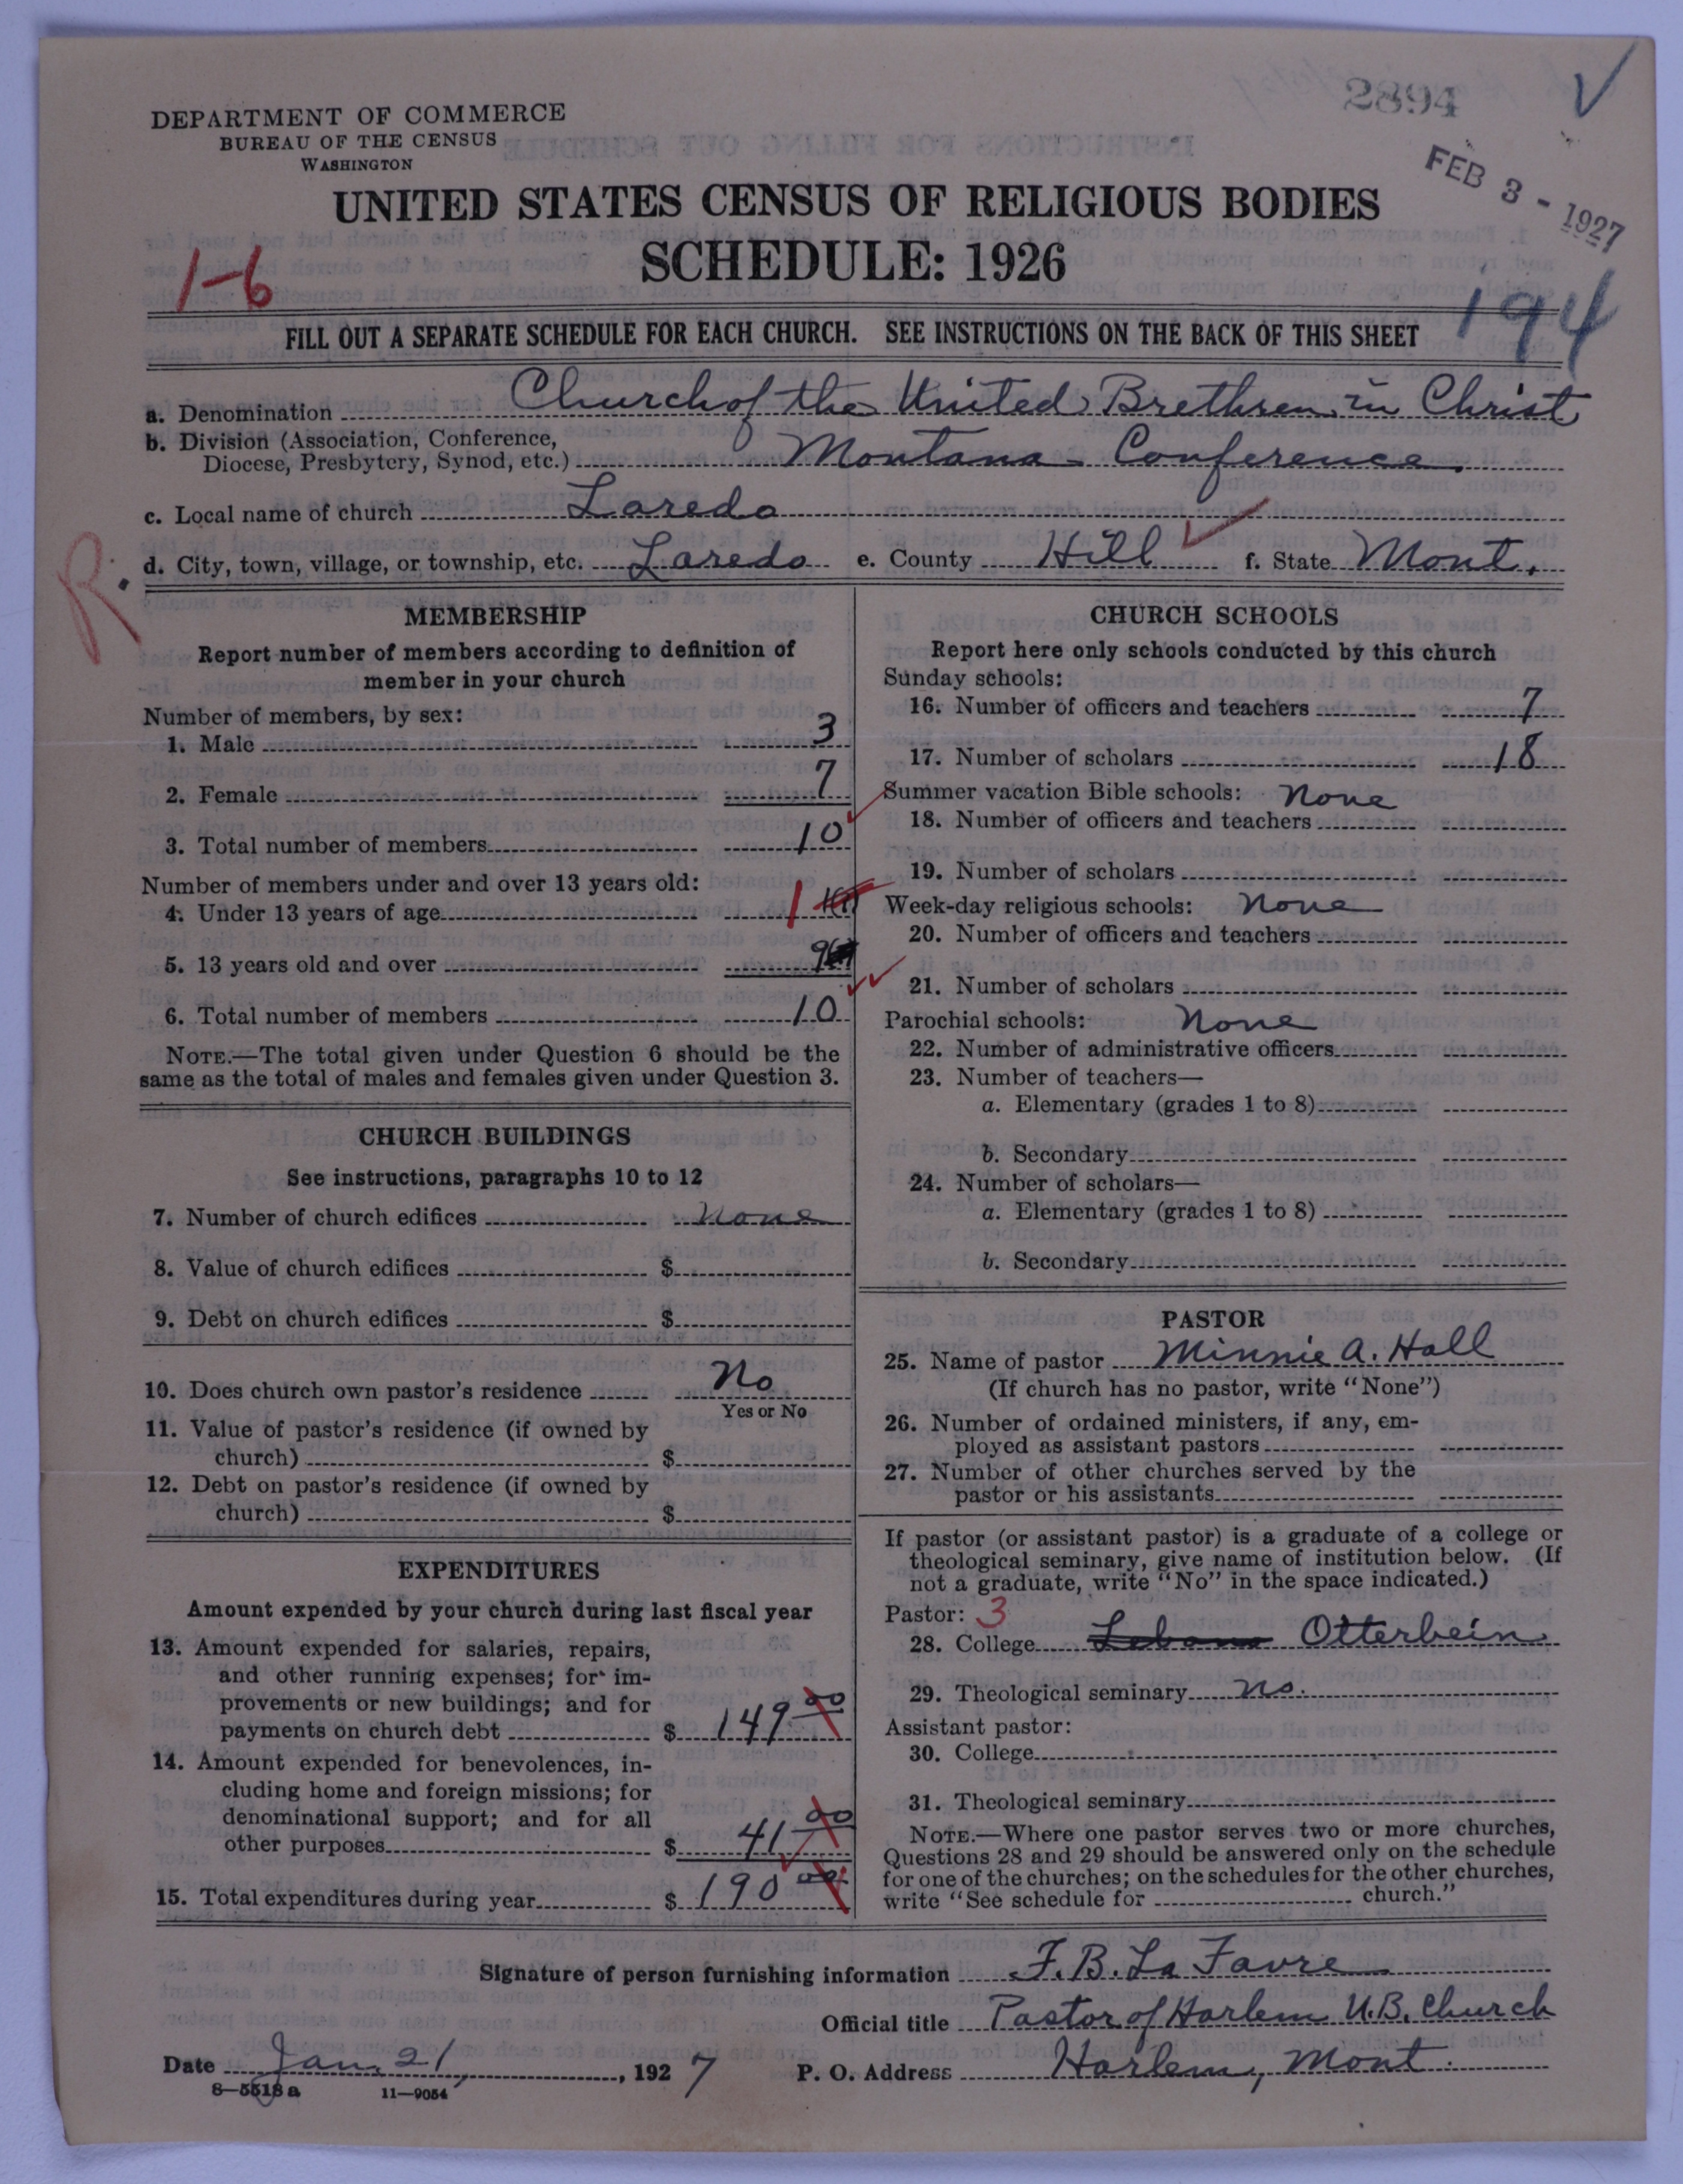 2894
DEPARTMENT OF COMMERCE
BUREAU OF THE CENSUS
WASHINGTON
FEB 3 - 1927
UNITED STATES CENSUS OF RELIGIOUS BODIES
SCHEDULE: 1926
1-6
194
FILL OUT A SEPARATE SCHEDULE FOR EACH CHURCH. SEE INSTRUCTIONS ON THE BACK OF THIS SHEET
a. Denomination Church of the United Brethren in Christ
b. Division (Association, Conference,
Diocese, Presbytery, Synod, etc.) Montana Conference.
c. Local name of church Laredo
R.
d. City, town, village, or township, etc. Laredo e. County Hill f. State Mont.
MEMBERSHIP
Report number of members according to definition of
member in your church
Number of members, by sex:
1. Male 3
2. Female 7
3. Total number of members 10
Number of members under and over 13 years old:
4. Under 13 years of age 1
5. 13 years old and over 9
6. Total number of members 10
NOTE.—The total given under Question 6 should be the
same as the total of males and females given under Question 3.
CHURCH BUILDINGS
See instructions, paragraphs 10 to 12
7. Number of church edifices None
8. Value of church edifices $
9. Debt on church edifices $
10. Does church own pastor's residence No
Yes or No
11. Value of pastor's residence (if owned by
church) $
12. Debt on pastor's residence (if owned by
church) $
EXPENDITURES
Amount expended by your church during last fiscal year
13. Amount expended for salaries, repairs,
and other running expenses; for im-
provements or new buildings; and for
payments on church debt $ 149 00
14. Amount expended for benevolences, in-
cluding home and foreign missions; for
denominational support; and for all
other purposes $ 41 00
15. Total expenditures during year $ 190 00
CHURCH SCHOOLS
Report here only schools conducted by this church
Sunday schools:
16. Number of officers and teachers 7
17. Number of scholars 18
Summer vacation Bible schools: None
18. Number of officers and teachers
19. Number of scholars
Week-day religious schools: None
20. Number of officers and teachers
21. Number of scholars
Parochial schools: None
22. Number of administrative officers
23. Number of teachers—
a. Elementary (grades 1 to 8)
b. Secondary
24. Number of scholars—
a. Elementary (grades 1 to 8)
b. Secondary
PASTOR
25. Name of pastor Minnie A. Hall
(If church has no pastor, write "None")
26. Number of ordained ministers, if any, em-
ployed as assistant pastors
27. Number of other churches served by the
pastor or his assistants
If pastor (or assistant pastor) is a graduate of a college or
theological seminary, give name of institution below. (If
not a graduate, write "No" in the space indicated.)
Pastor: 3
28. College Otterbein
29. Theological seminary no.
Assistant pastor:
30. College
31. Theological seminary
NOTE.—Where one pastor serves two or more churches,
Questions 28 and 29 should be answered only on the schedule
for one of the churches; on the schedules for the other churches,
write "See schedule for church."
Signature of person furnishing information F. B. La Favre
Official title Pastor of Harlem U.B. Church
Date Jan. 21, 1927 P. O. Address Harlem, Mont.
8—5518 a 11—9054